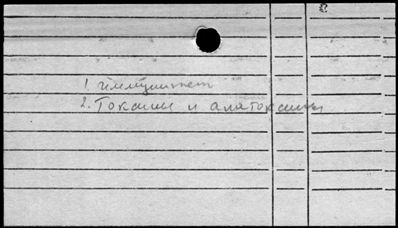 1. Иммунитет
2. Токсины и анатоксины